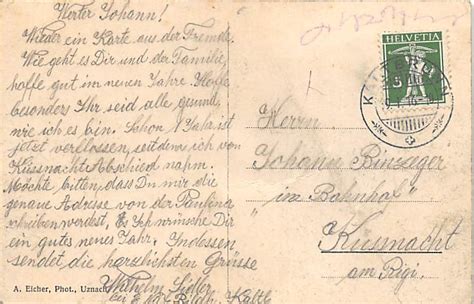 Werter Johann!
Wieder ein Karte aus der Fremde.
Wie geht es Dir und der Familie,
hoffe gut im neuen Jahre. Hoffe
besonders Ihr seid alle gesund,
wie ich es bin. Schon 1 Jahr ist
jetzt verflossen, seitdem ich von
Küssnacht Abschied nahm.
Möchte bitten, dass Du mir die
genaue Adresse von der Paulina
schreiben werdest. Ich wünsche Dir
ein gutes neues Jahr. Indessen
sendet die herzlichsten Grüsse
Wilhelm
A. Eicher, Phot., Uznach
HELVETIA
5
KALTBRUNN
Herrn
Johann Rinzeger
"im Bahnhof"
Küssnacht
am Rigi.